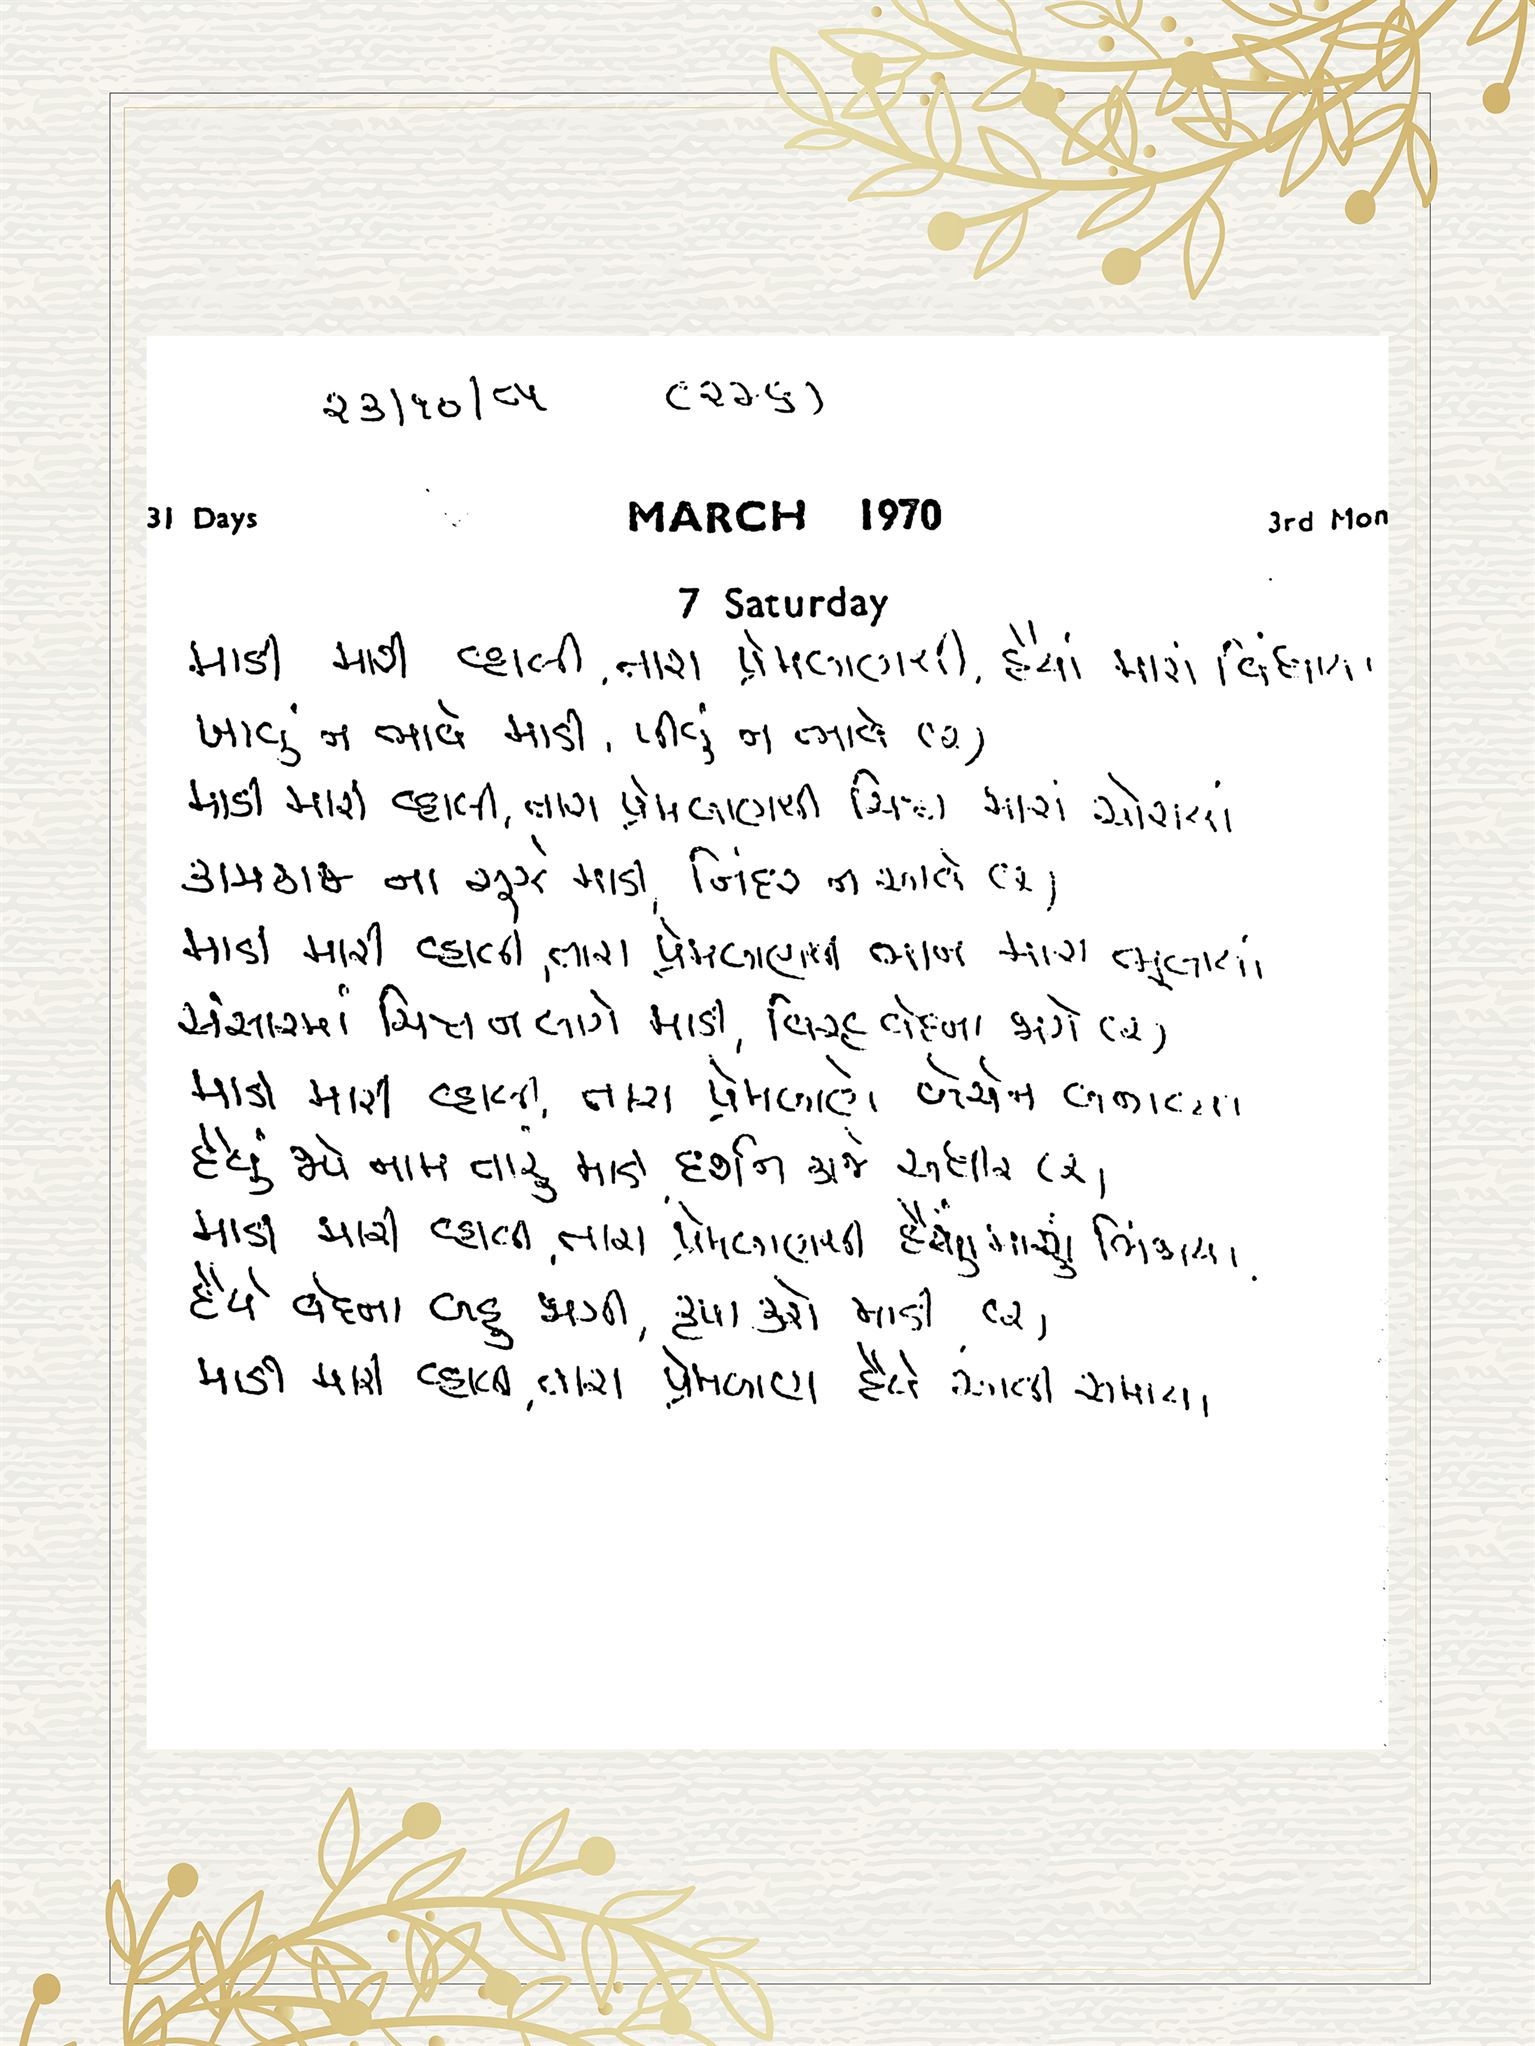 ૨૩/૧૦/૮૫ (૨૩૬)
31 Days MARCH 1970 3rd Mon
7 Saturday
માડી મારી વ્હાલી, તારા પ્રેમબાણથી, હૈયાં મારાં વિંધાયા
ખાવું ન ભાવે માડી, પીવું ન ભાવે (૨)
માડી મારી વ્હાલી, તારા પ્રેમબાણથી ચિત્ત મારાં ચોરાયાં
કામકાજ ના સૂઝે માડી, નિંદર ન આવે (૨)
માડી મારી વ્હાલી, તારા પ્રેમબાણથી ભાન મારા ભૂલાયાં
સંસારમાં ચિત્ત ન લાગે માડી, વિરહ વેદના જાગે (૨)
માડી મારી વ્હાલી, તારા પ્રેમબાણે બેચેન બનાવ્યા
હૈયું જપે નામ તારું માડી, દર્શન કાજે અધીર (૨)
માડી મારી વ્હાલી, તારા પ્રેમબાણથી હૈયું મારું ભિંજાયા.
હૈયે વેદના બહુ જાગી, કૃપા કરો માડી (૨)
માડી મારી વ્હાલી, તારા પ્રેમબાણ હૈયે આવી સમાયા